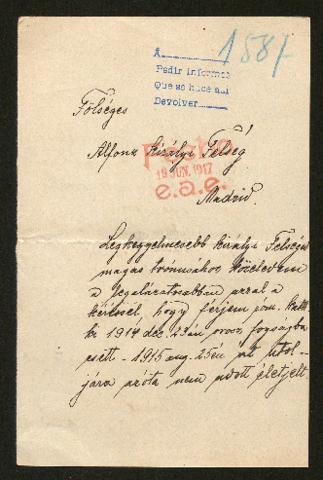 1587
A
Pedir informes
Que se hace ahi
Devolver
Fölséges
Alfonz Királyi Felség
Fecho
19 JUN. 1917
e.a.e.
Madrid.
Legkegyelmesebb királyi Felséged
magas trónusához közeledem
a legalázatosabban azzal a
kéréssel, hogy férjem
ki 1914 dec. 23án orosz fogságba
esett - 1915 aug. 25én utol-
jára azóta nem adott életjelt